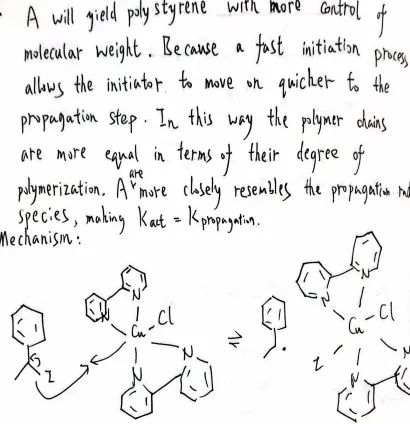 A will yield polystyrene with more control of
molecular weight. Because a fast initiation process
allows the initiator to move on quicker to the
propagation step. In this way the polymer chains
are more equal in terms of their degree of
polymerization. A are more closely resembles the propagation
species, making Kact = Kpropagation.
Mechanism:
N N Cl
Cu
N N
I
⇌
N N Cl
Cu
I
N N